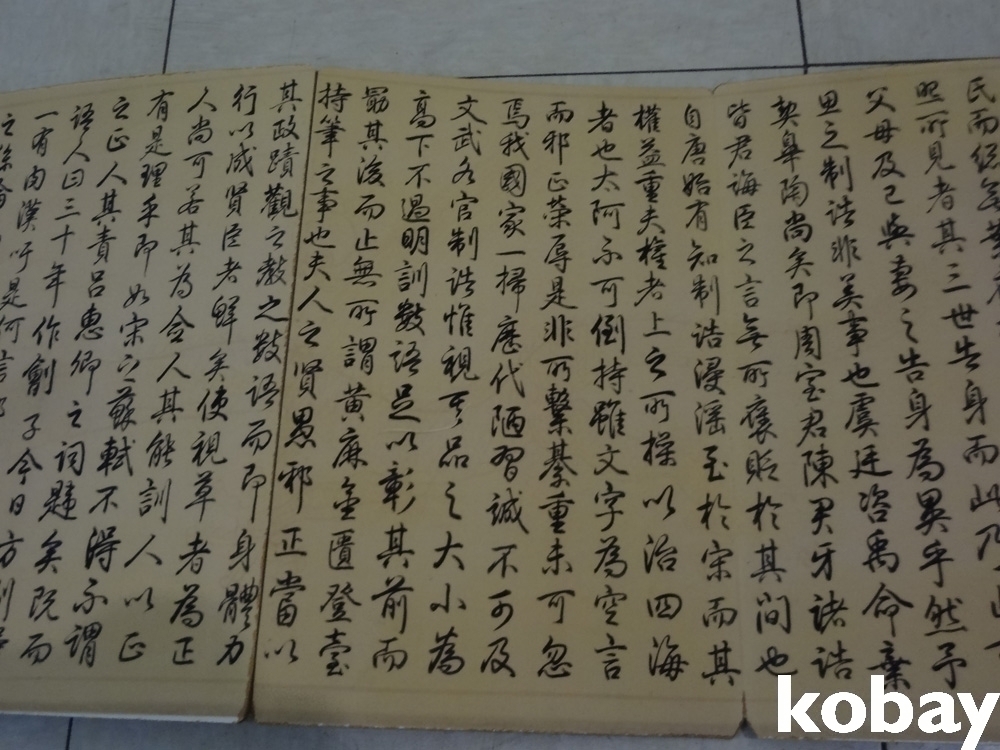 民而
照所見者其三世告身而此乃
父母及己與妻之告身為異乎然予
思之制誥非美事也虞廷咨禹命棄
契皋陶尚矣即周室君陳君牙諸誥
皆君誨臣之言無所褒貶於其間也
自唐始有知制誥浸淫至於宋而其
權益重夫權者上之所操以治四海
者也太阿不可倒持雖文字為空言
而邪正榮辱是非所繫綦重未可忽
焉我國家一掃歷代陋習誠不可及
文武各官制誥惟視其品之大小為
高下不過明訓數語足以彰其前而
勗其後而止無所謂黃麻金匱登臺
持筆之事也夫人之賢愚邪正當以
其政蹟觀之教之數語而即身體力
行以成賢臣者鮮矣使視草者為正
人尚可若其為僉人其能訓人以正
有是理乎即如宋之蘇軾不得不謂
之正人其責呂惠卿之詞韙矣既而
語人曰三十年作劊子今日方剮
一有肉漢吁是何言
kobay